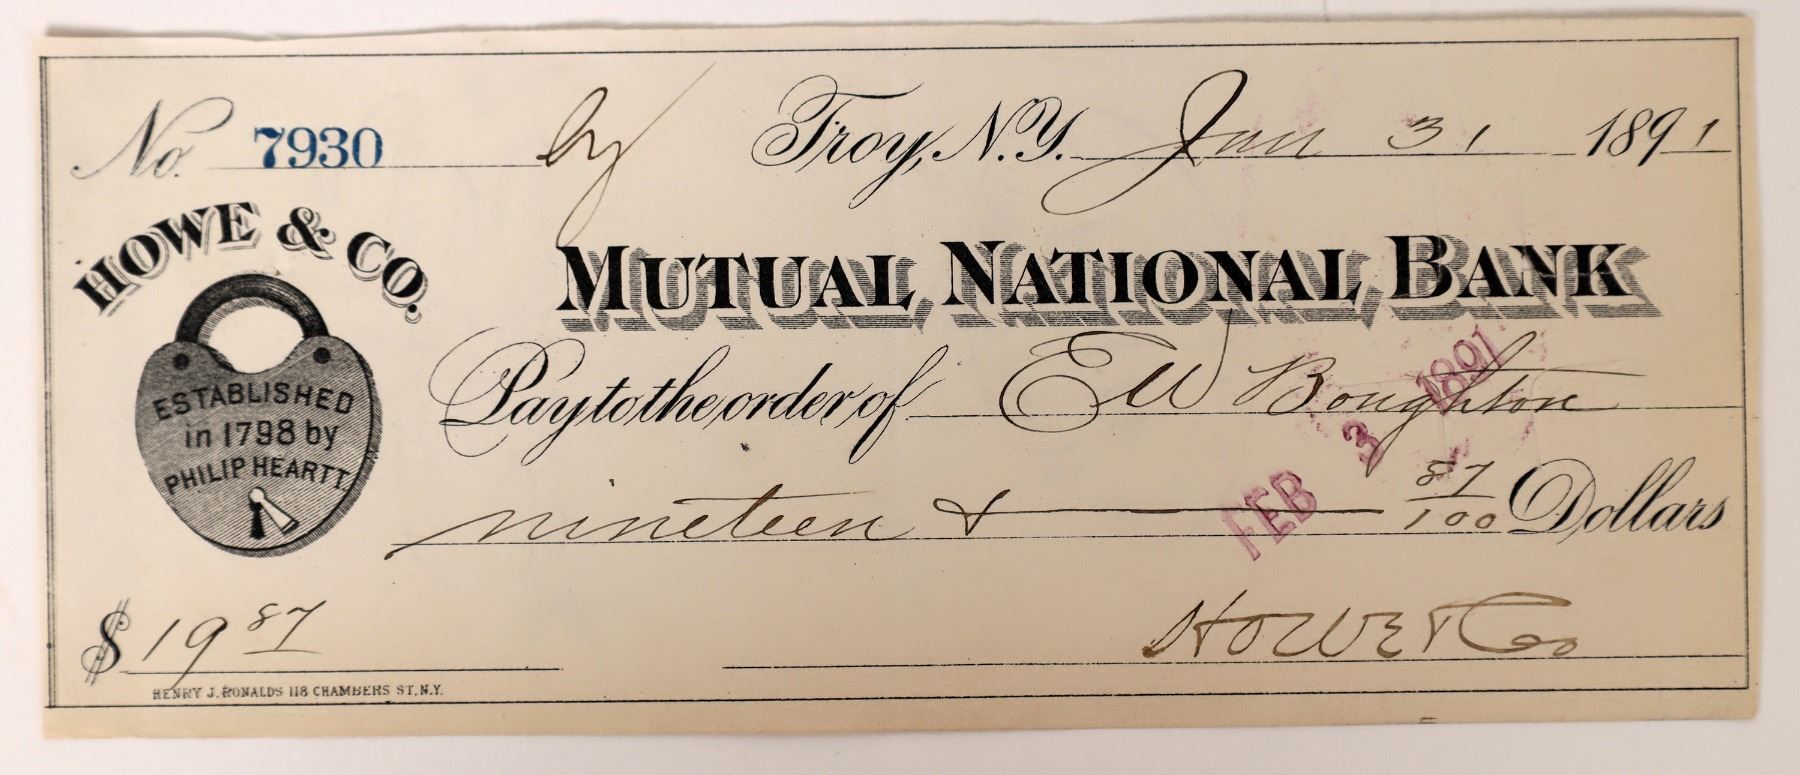 No. 7930 by Troy, N.Y. Jan 31 1891
HOWE & CO.
MUTUAL NATIONAL BANK
ESTABLISHED
in 1798 by
PHILIP HEARTT.
Pay to the order of E W Boughton
FEB 3 1891
nineteen & 87/100 Dollars
$ 19 87
Howe & Co
HENRY J. RONALDS 118 CHAMBERS ST. N.Y.